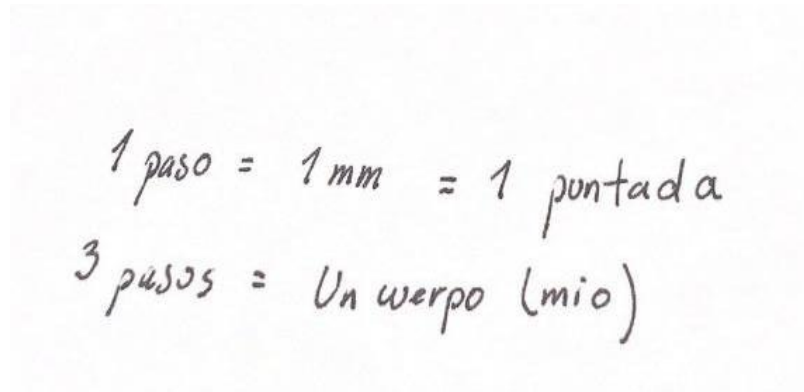 1 paso = 1 mm = 1 puntada
3 pasos = Un cuerpo (mio)